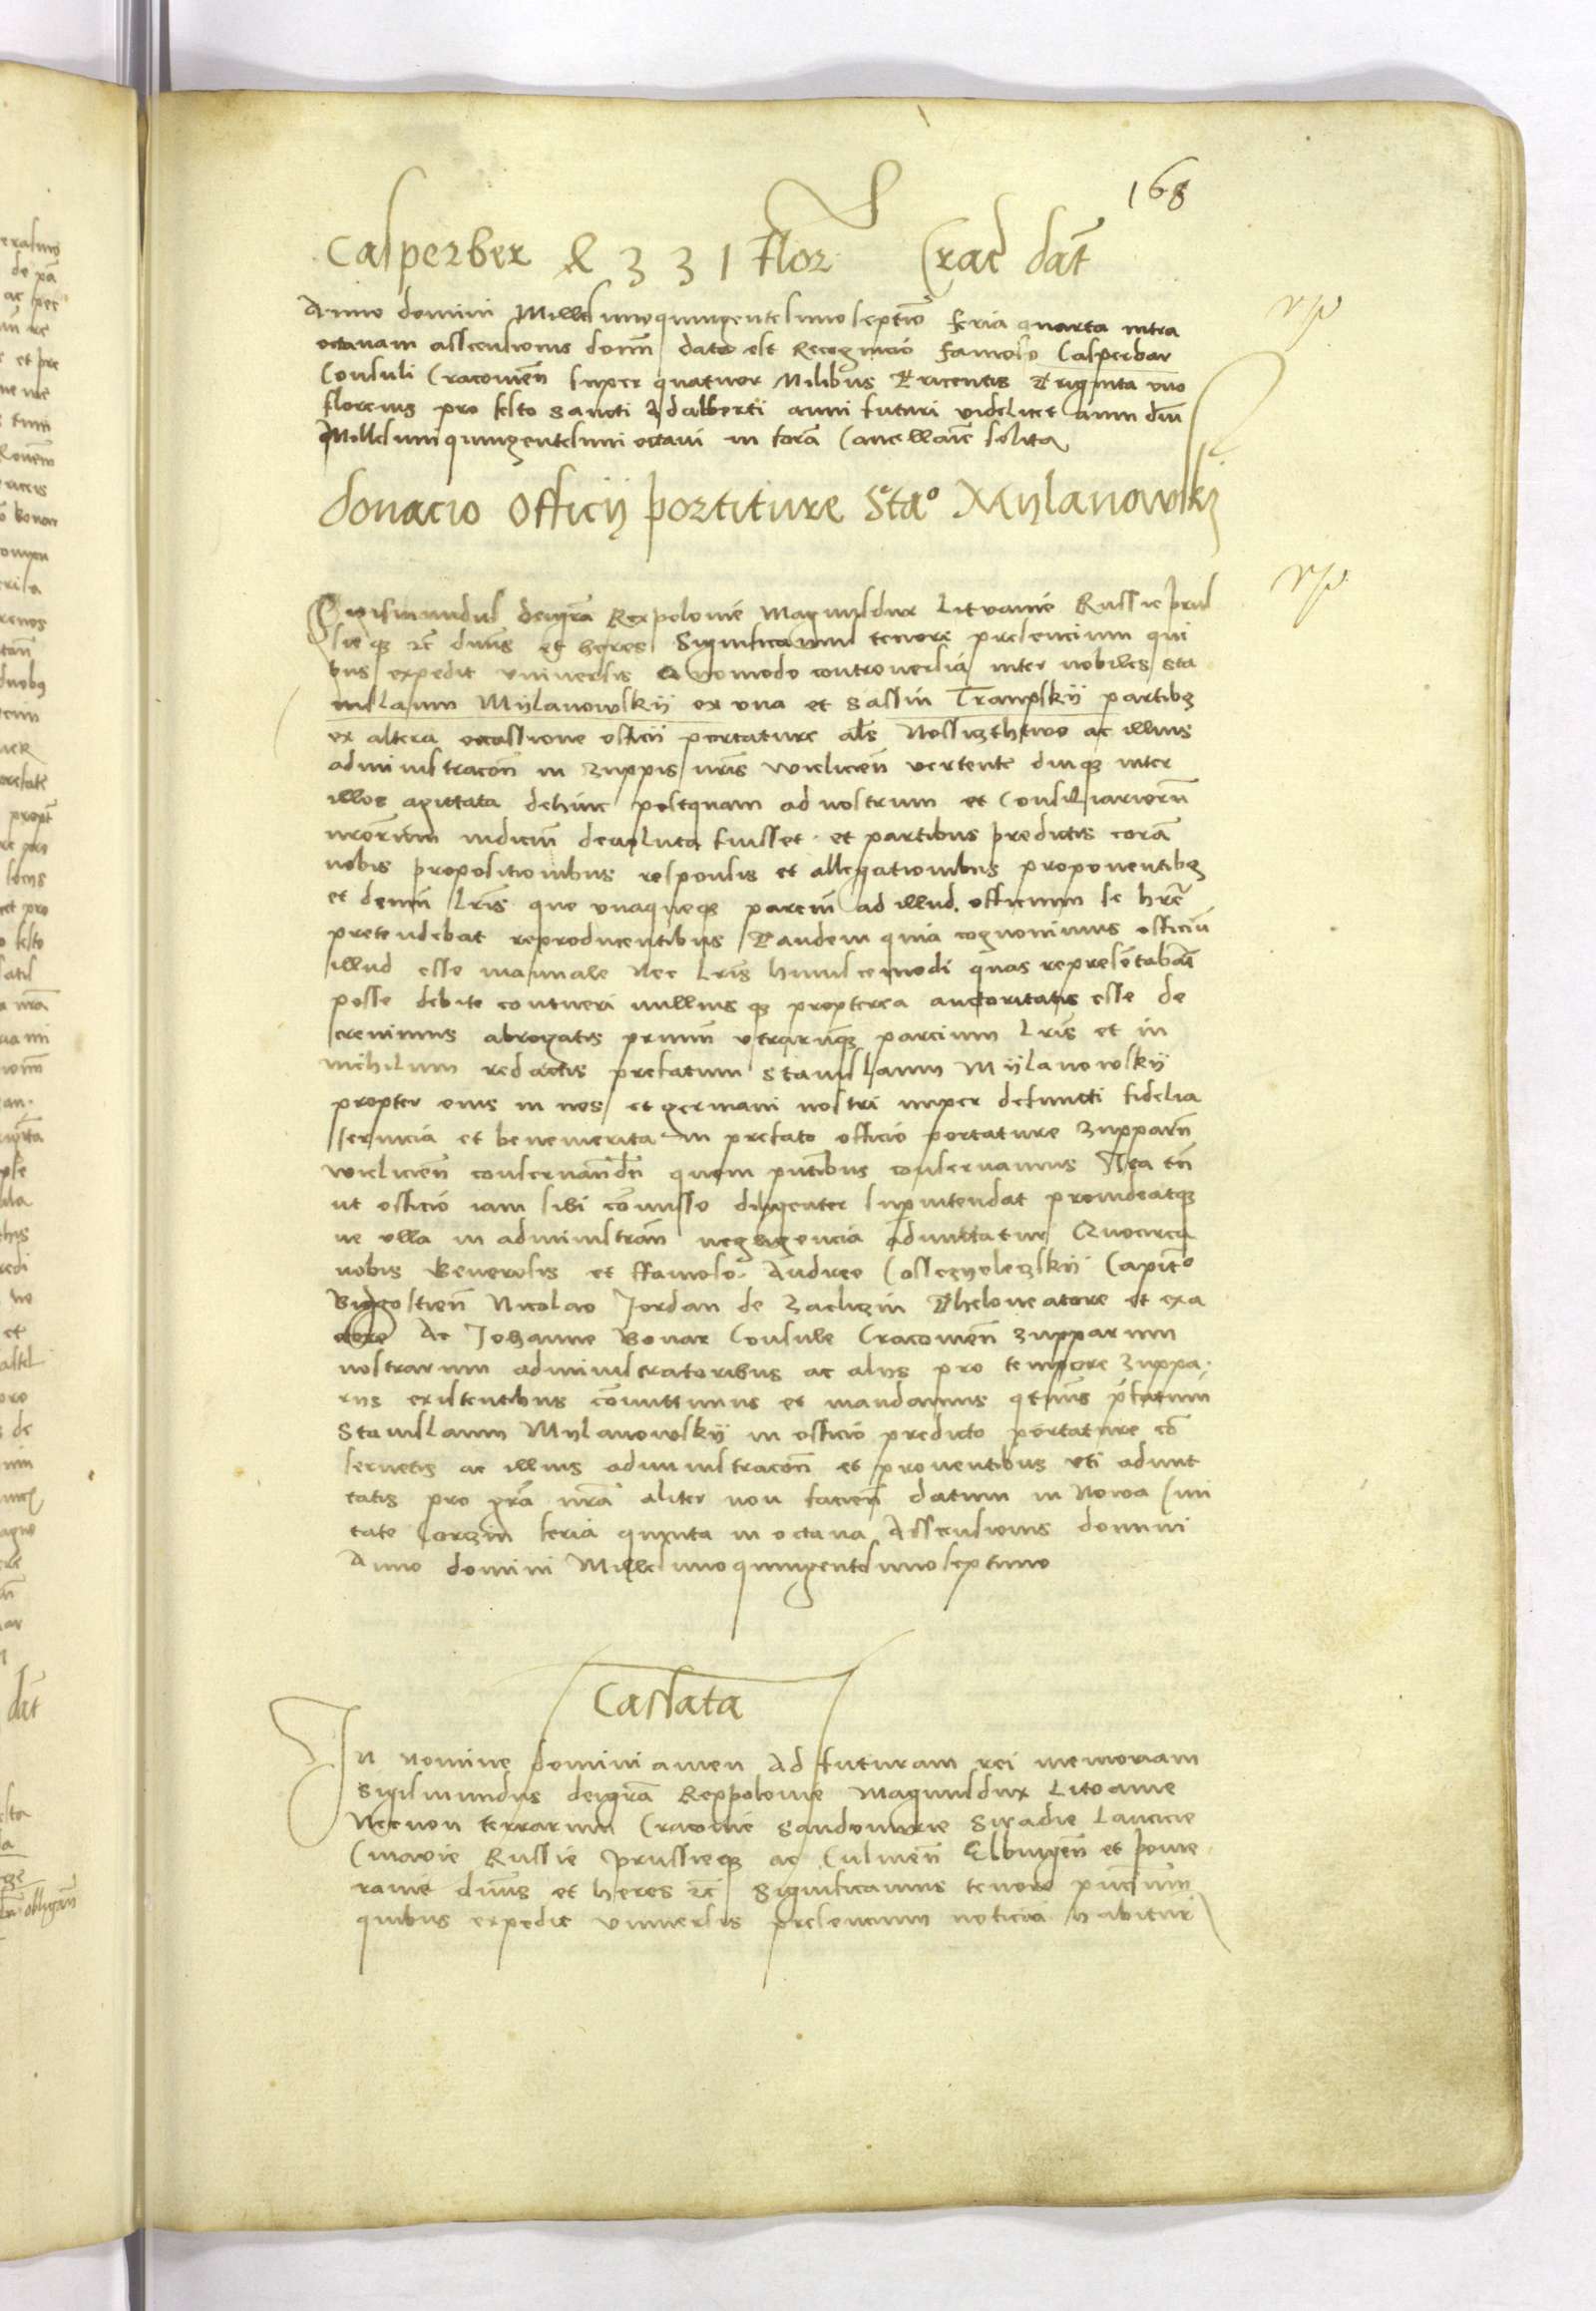 168
Casperber & 331 flor Crac dat̄
Anno domini Millesimoquingentesimoseptīo feria quarta intra
octavam ascensionis domī data est Recognicio famoso Casperbar
Consuli Cracovieñ super quatuor Milibus Tricentis Triginta vno
florenis pro festo sancti Adalberti anni futuri videlicet anni dnī
Millesimi quingentesimi octavi in forā Cancellarie solita
donacio Officij portiture Stao Mylanowskj
Sigismundus deigrā Rexpolonie Magnusdux Litvanie Russie prus
sieqz zc̄ dnūs et heres Significamus tenore presencium qui
bus expedit vniversis Quomodo controversia inter nobiles sta
nislaum Mijlanowskij ex vna et Sassin Trampskij partibz
ex altera occassione officij portature als̄ Nossiczthwo ac illius
administracōn in zuppis nrīs wieliciēn vertente diuqz inter
illos agittata dehinc postquam ad nostrum et Consiliariorū
nrōrum iudiciū devoluta fuisset et partibus predictis corā
nobis propositionibus responsis et allegationibus proponentibz
et demū Lrīs que vnaqueqz parciū ad illud officium se hrē
pretendebat reproducentibus Tandem quia cognovimus officiū
illud esse manuale Nec Lrīs huiuscemodi quas represētabāt
posse debite contueri nulliusqz propterea auctoritatis esse de
crevimus abrogatis primū vtrarūqz parcium Lrīs et in
nichilum redactis prefatum Stanislaum Mijlanowskij
propter eius in nos et germani nostri nuper defuncti fidelia
servicia et benemerita in prefato officio portature zupparū
wieliciēn conservandū quem pntībus conservamus Ita tn̄
ut officio iam sibi cōmisso diligenter supintendat provideatqz
ne vlla in administrān negligencia admittatur Quocirca
vobis Generosis et ffamoso Andree Cosczyeleczskij Capitō
Bidgostiēn Nicolao Jordan de Zacliczin Theloneatore et exa
ctore Ac Johanne Bonar Consule Cracoviēn zupparum
nostrarum administratoribus ac alijs pro tempore zuppa
rijs existentibus cōmittimus et mandamus qtīnus pfatum
Stanislaum Mylanowskij in officio predicto portature cō
servetis ac illius administracōn et proventibus vti admit
tatis pro grā nrā aliter non faciēn datum in Nowa Civi
tate Corczin feria quinta in octava Ascensionis domini
Anno domini Millesimoquingentesimoseptimo
Cassata
In nomine domini amen Ad futuram rei memoriam
Sigismundus deigrā Rexpolonie Magnusdux Litvanie
Necnon terrarum Cracovie Sandomirie Siradie Lancicie
Cuiavie Russie prussieqz ac Culmēn Elbingēn et pome
ranie dnūs et heres zc̄ Significamus tenore pncium
quibus expedit vniversis presencium noticia habitur